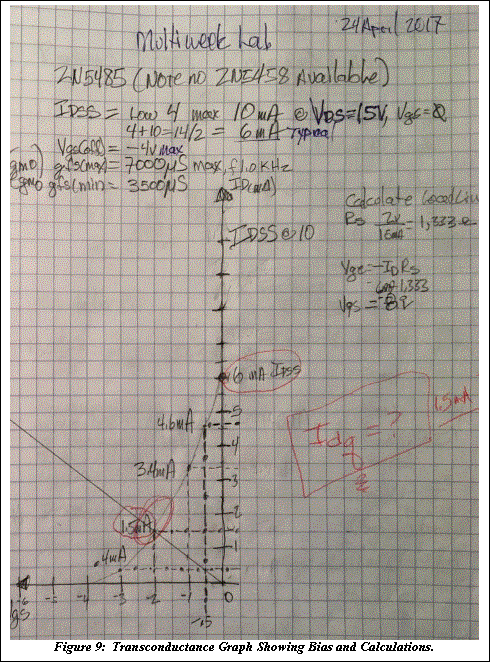 24 April 2017
Multiweek Lab
2N5485 (Note no 2N5458 Available)
IDSS = Low 4 max 10mA @ VDS=15V, Vgs=0
4+10=14/2 = 6mA Typical
Vgs(off) = -4V max
(gmo) gfs(max) = 7000µS max, f 1.0 KHz
(gmo gfs(min = 3500µS
ID(mA)
IDSS @ 10
Calculate Load Line
Rs 2V/1.5mA = 1,333 Ω
Vgs = -IDRS
6mA·1,333
Vgs = -8V
6 mA IDSS
5
4.6mA
4
3.4mA
3
2
1.5mA
1
.4mA
Idq = ?
1.5mA
-6 -5 -4 -3 -2 -1 0
gs
-.5
Figure 9: Transconductance Graph Showing Bias and Calculations.